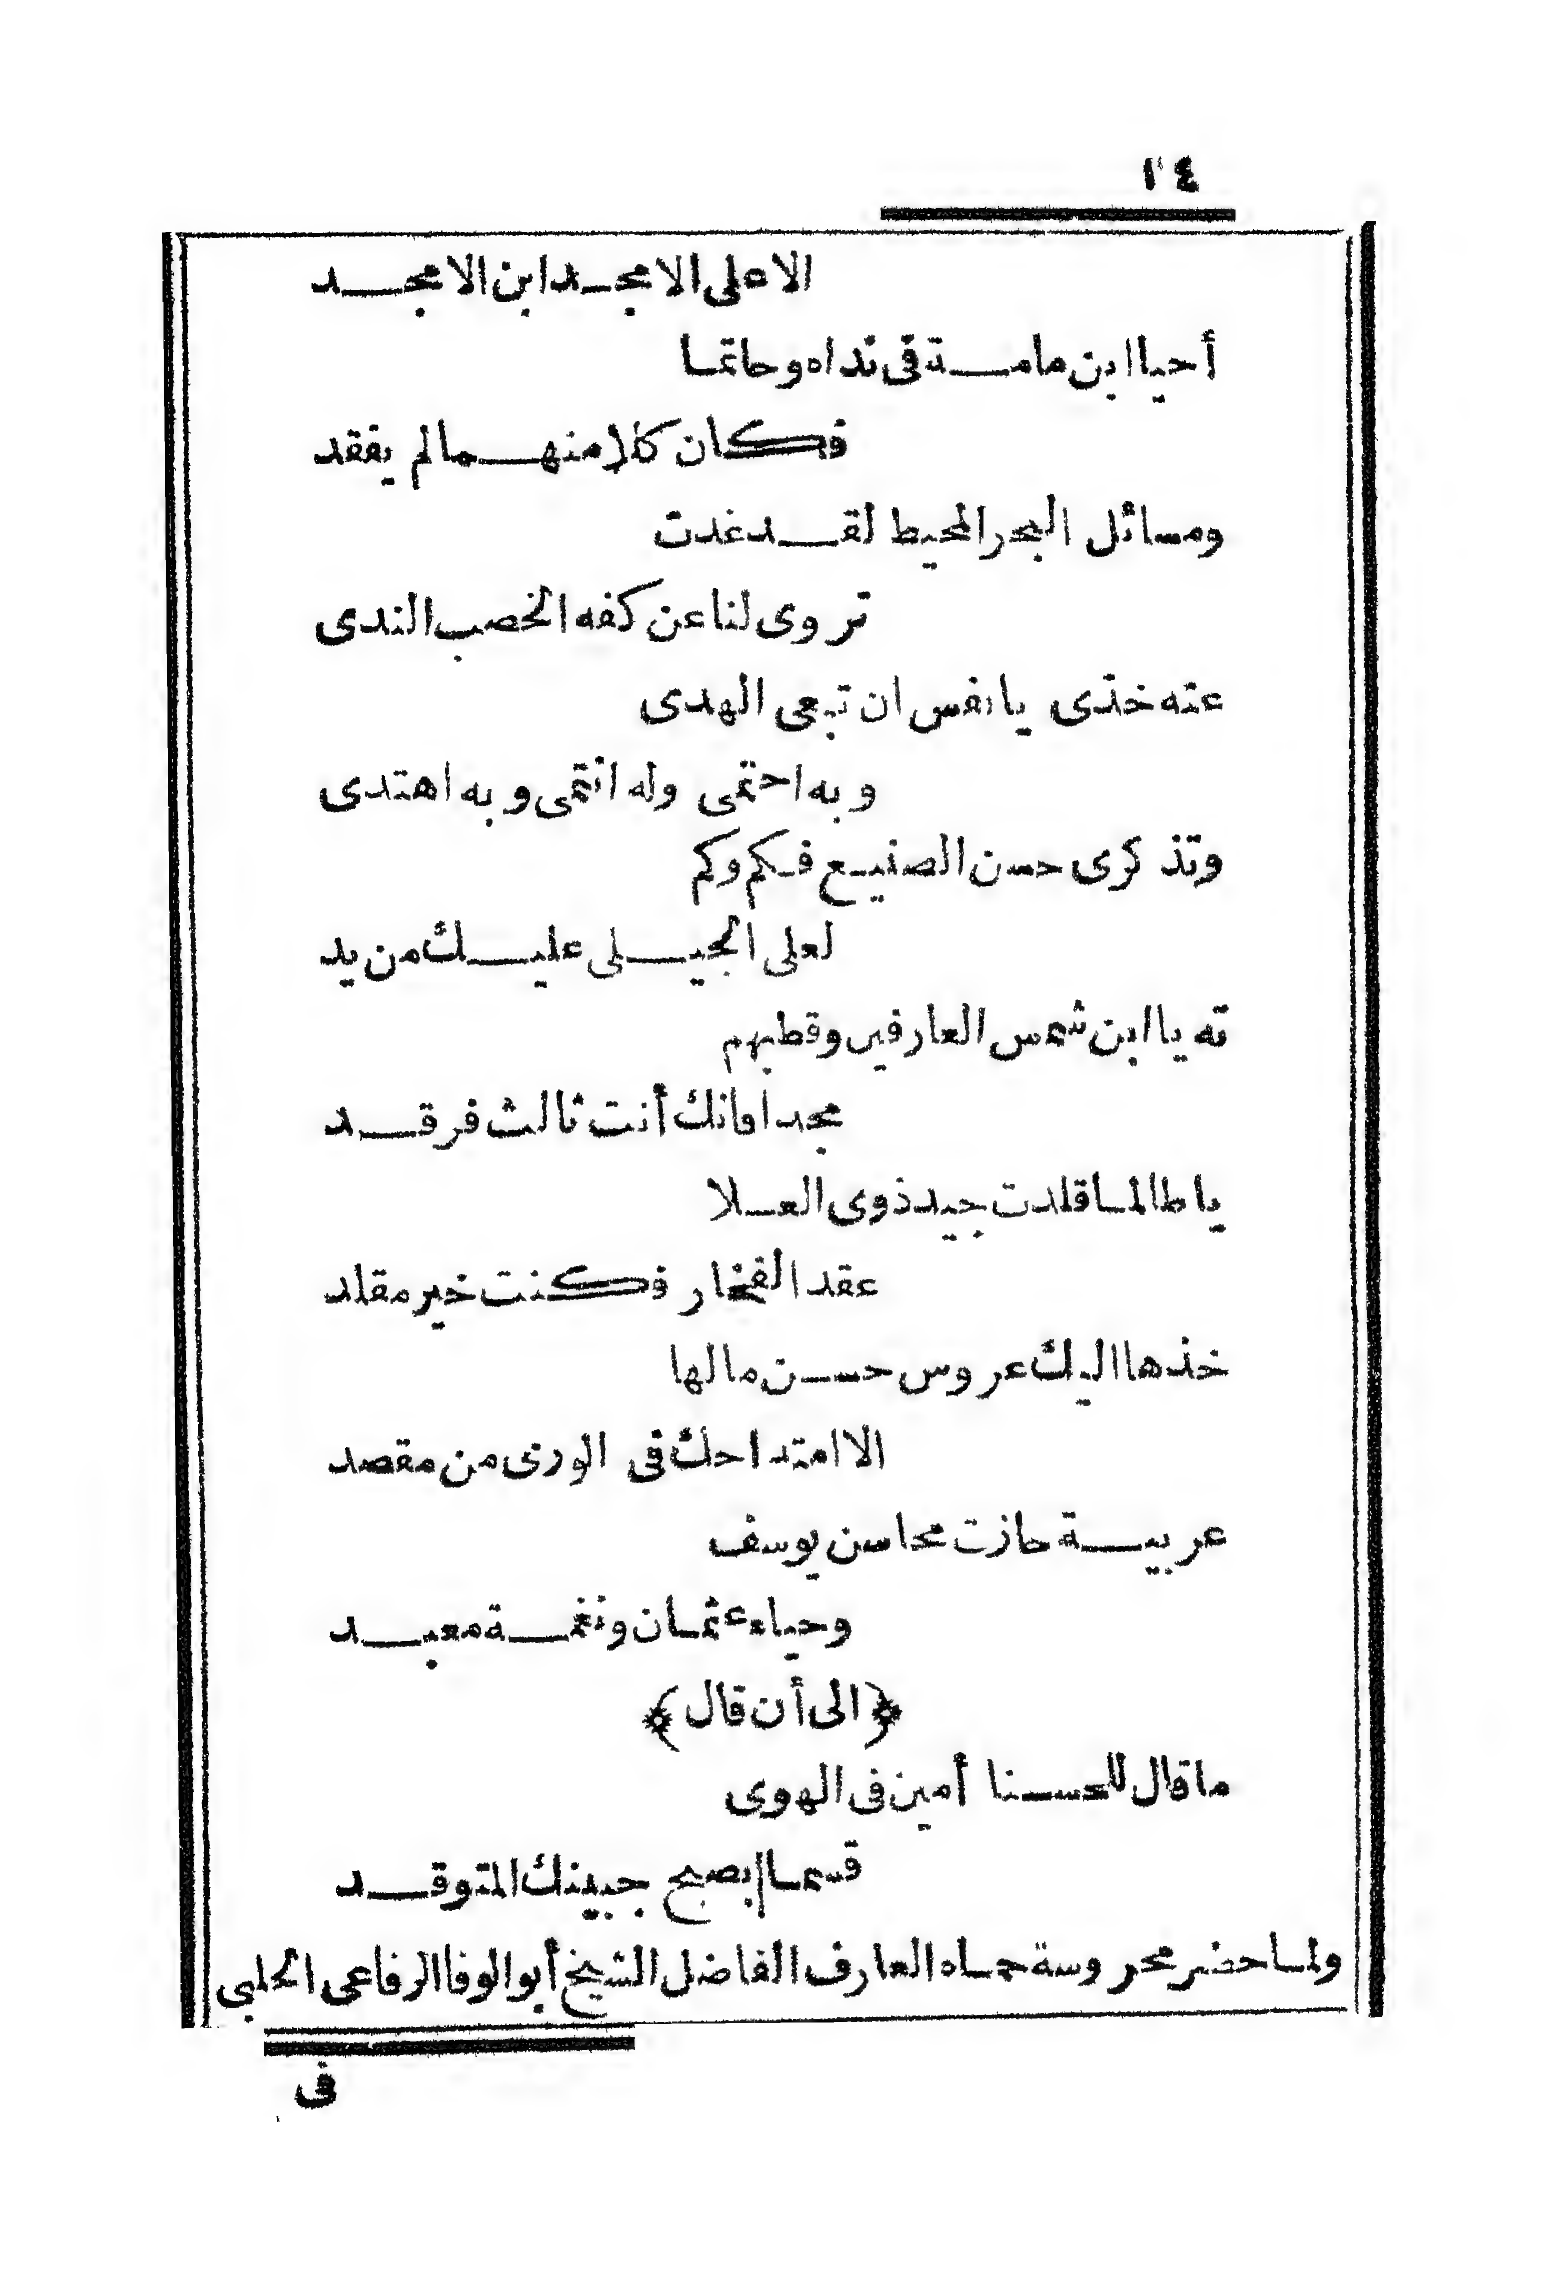 ١٤
الاعلى الامجد ابن الامجد
أحيا ابن مامة فى نداه وحاتما
فكان كلا منهما لم يفقد
ومسائل البحر المحيط لقد غدت
تروى لنا عن كفه الخصب الندى
عنه خذى يا نفس ان تبعى الهدى
وبه احتمى وله انتمى وبه اهتدى
وتذكرى حسن الصنيع فكم وكم
لعلى الجيلى عليك من يد
ته يا ابن شمس العارفين وقطبهم
مجدا فانك أنت ثالث فرقد
يا طالما قلدت جيد ذوى العلا
عقد الفخار فكنت خير مقلد
خذها اليك عروس حسن مالها
الا امتداحك فى الورى من مقصد
عربية حازت محاسن يوسف
وحياء عثمان ونغمة معبد
﴿الى أن قال﴾
ما قال للحسنا أمين فى الهوى
قسما بصبح جبينك المتوقد
ولما حضر محروسة حماه العارف الفاضل الشيخ أبو الوفا الرفاعى الحلبى
فى